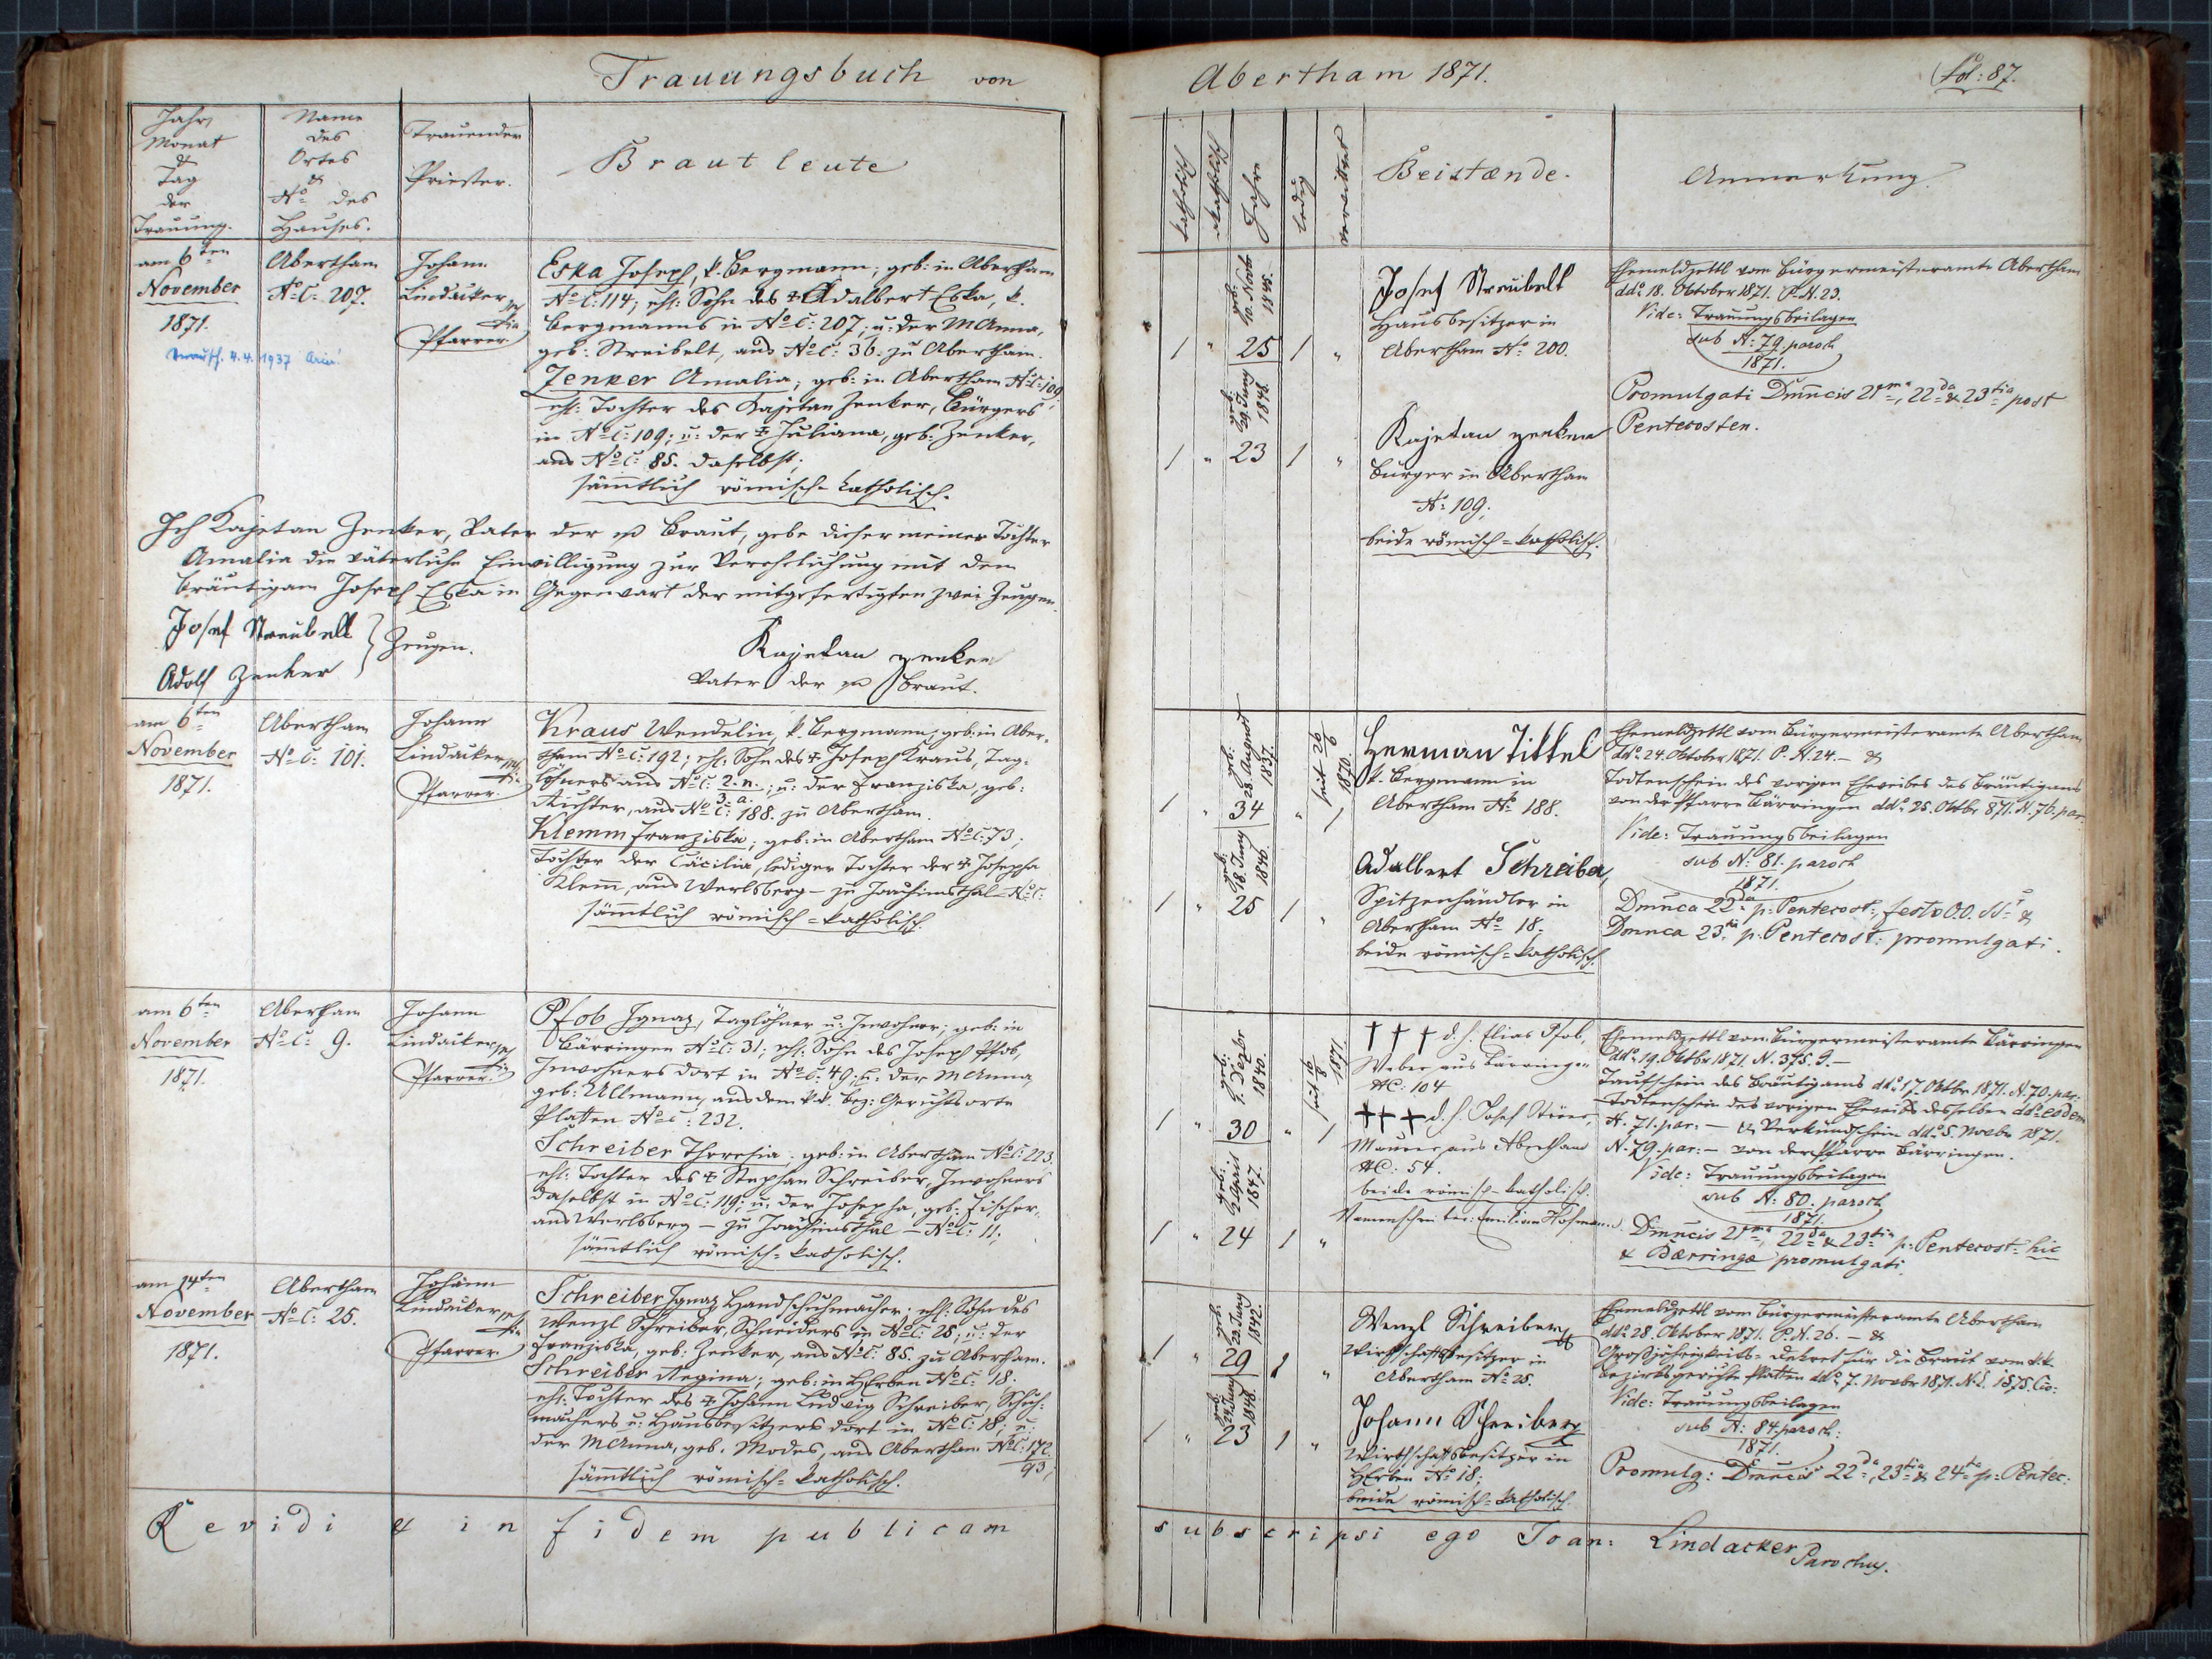 Trauungsbuch von
Abertham 1871.
Fol: 87.
Jahr,
Monat
&
Tag
der
Trauung.
Name
des
Ortes
&
No des
Hauses.
Trauender
Priester.
Brautleute
katholisch
akatholisch
Jahre
ledig
verwittwet
Beistænde.
Anmerkung.
am 6ten
November
1871.
4. 4. 1937
Abertham
No C: 207.
Johann
Lindacker
Pfarrer
Eska Joseph, k. Bergmann; geb: in Abertham
No C: 114; ehl: Sohn des ✝ Adalbert Eska, k.
Bergmanns in No C: 207; u: der M Anna,
geb: Streibelt, aus No C: 36. zu Abertham.
Zenker Amalia; geb: in Abertham No C: 109;
ehl: Tochter des Kajetan Zenker, Bürgers
in No C: 109; u: der ✝ Juliana, geb: Zenker,
aus No C: 85. daselbst;
sämtlich römisch-katholisch.
Ich Kajetan Zenker, Vater der Braut, gebe dieser meiner Tochter
Amalia die väterliche Einwilligung zur Verehelichung mit dem
Bräutigam Joseph Eska in Gegenwart der mitgefertigten zwei Zeugen.
Josef Streubelt
Adolf Zenker
Zeugen.
Kajetan Zenker
Vater der Braut.
geb:
10. Novb
1845.
1 " 25 1 "
geb:
29. Juny
1848.
1 " 23 1 "
Josef Streubelt
Hausbesitzer in
Abertham No 200.
Kajetan Zenker
Bürger in Abertham
No: 109;
beide römisch=katholisch.
Ehemeldzettl vom Bürgermeisteramte Abertham
ddo 18. Oktober 1871. P. N. 23.
Vide: Trauungsbeilagen
sub N: 79. paroch
1871.
Promulgati Dmncis 21ma, 22da & 23tia post
Pentecosten.
am 6ten
November
1871.
Abertham
No C: 101.
Johann
Lindacker
Pfarrer
Kraus Wendelin, k. Bergmann; geb: in Aber-
tham No C: 192; ehl: Sohn des ✝ Joseph Kraus, Tag-
löhners aus No C: 2. n. 3. a.; u: der Franziska, geb:
Richter, aus No C: 188. zu Abertham.
Klemm Franziska; geb: in Abertham No C: 73;
Tochter der Cäcilia, lediger Tochter der ✝ Josepha
Klemm, aus Werlsberg – zu Joachimsthal – No C:
sämmtlich römisch=katholisch.
geb:
28. August
1837.
seit 26
6
1870.
1 " 34 " 1
geb:
18. Juny
1846.
1 " 25 1 "
Herman Tittel
k. Bergmann in
Abertham No 188.
Adalbert Schreiber,
Spitzenhändler in
Abertham No 18.
beide römisch=katholisch.
Ehemeldzettl vom Bürgermeisteramte Abertham
ddo 24. Oktober 1871. P. N. 24. – &
Todtenschein des vorigen Eheweibes des Bräutigams
von der Pfarre Bärringen ddo 25. Oktbr 871. N. 76. par.
Vide: Trauungsbeilagen
sub N: 81. paroch
1871.
Dmnca 22da p: Pentecost:, festo O.O. SS: &
Dmnca 23tia p: Pentecost: promulgati.
am 6ten
November
1871.
Abertham
No C: 9.
Johann
Lindacker
Pfarrer.
Pfob Ignaz, Taglöhner u: Inwohner; geb: in
Bärringen No C: 31; ehl: Sohn des Joseph Pfob,
Inwohners dort in No C: 49; u: der M Anna,
geb: Ullmann, aus dem k.k. Bez: Gerichtsorte
Platten No C: 232.
Schreiber Theresia; geb: in Abertham No C: 223
ehl: Tochter des ✝ Stephan Schreiber, Inwohners
daselbst in No C: 119; u: der Josepha, geb: Fischer,
aus Werlsberg – zu Joachimsthal – No C: 11;
sämmtlich römisch=katholisch.
geb:
9. Dezbr
1840.
seit 9
8
1871.
1 " 30 " 1
geb:
2. April
1847.
1 " 24 1 "
✝ ✝ ✝ d. h. Elias Pfob,
Weber aus Bärringen
NC: 104
✝✝✝ d. h. Josef Störer,
Maurer aus Abertham
NC: 54.
beide römisch-katholisch.
Namenschreiber: Emilian Hofmann.
Ehemeldzettl vom Bürgermeisteramte Bärringen
ddo 19. Oktbr 1871. N. 375. 9. –
Taufschein des Bräutigams ddo 17. Oktbr. 1871. N. 70. par.
Todtenschein des vorigen Eheweibs desselben ddo eodem
N. 71. par: – & Verkundschein ddo 5. Novbr 1871.
N. 79. par: – von der Pfarre Bärringen.
Vide: Trauungsbeilagen
sub N: 80. paroch
1871.
Dmncis 21ma, 22da & 23tia p: Pentecost: hic
& Bærringæ promulgati.
am 14ten
November
1871.
Abertham
No C: 25.
Johann
Lindacker
Pfarrer
Schreiber Ignaz Handschuhmacher; ehl: Sohn des
Wenzl Schreiber, Schneiders in No C: 25; u: der
Franziska, geb: Zenker, aus No C: 85. zu Abertham.
Schreiber Regina; geb: in HErben No C: 18.
ehl: Tochter des ✝ Johann Ludwig Schreiber, Schuh-
machers u: Hausbesitzers dort in No C: 18; u:
der M Anna, geb. Modes, aus Abertham No C: 172
93;
sämmtlich römisch=katholisch.
geb:
23. Juny
1842.
1 " 29 1 "
geb:
24. Juny
1848.
1 " 23 1 "
Wenzl Schreiber
Wirthschaftsbesitzer in
Abertham No 25.
Johann Schreiber
Wirthschaftsbesitzer in
HErben No 18;
beide römisch=katholisch.
Ehemeldzettl vom Bürgermeisteramte Abertham
ddo 28. Oktober 1871. P. N. 26. – &
Großjährigkeits-Dekret für die Braut vom k.k.
Bezirksgerichte Platten ddo 7. Novbr 1871. N. E. 1575. Civ:
Vide: Trauungsbeilagen
sub N: 84. paroch:
1871.
Promulg: Dmncis 22da, 23tia & 24ta p: Pentec:
Revidi & in fidem publicam
subscripsi ego Joan: Lindacker
Parochus.